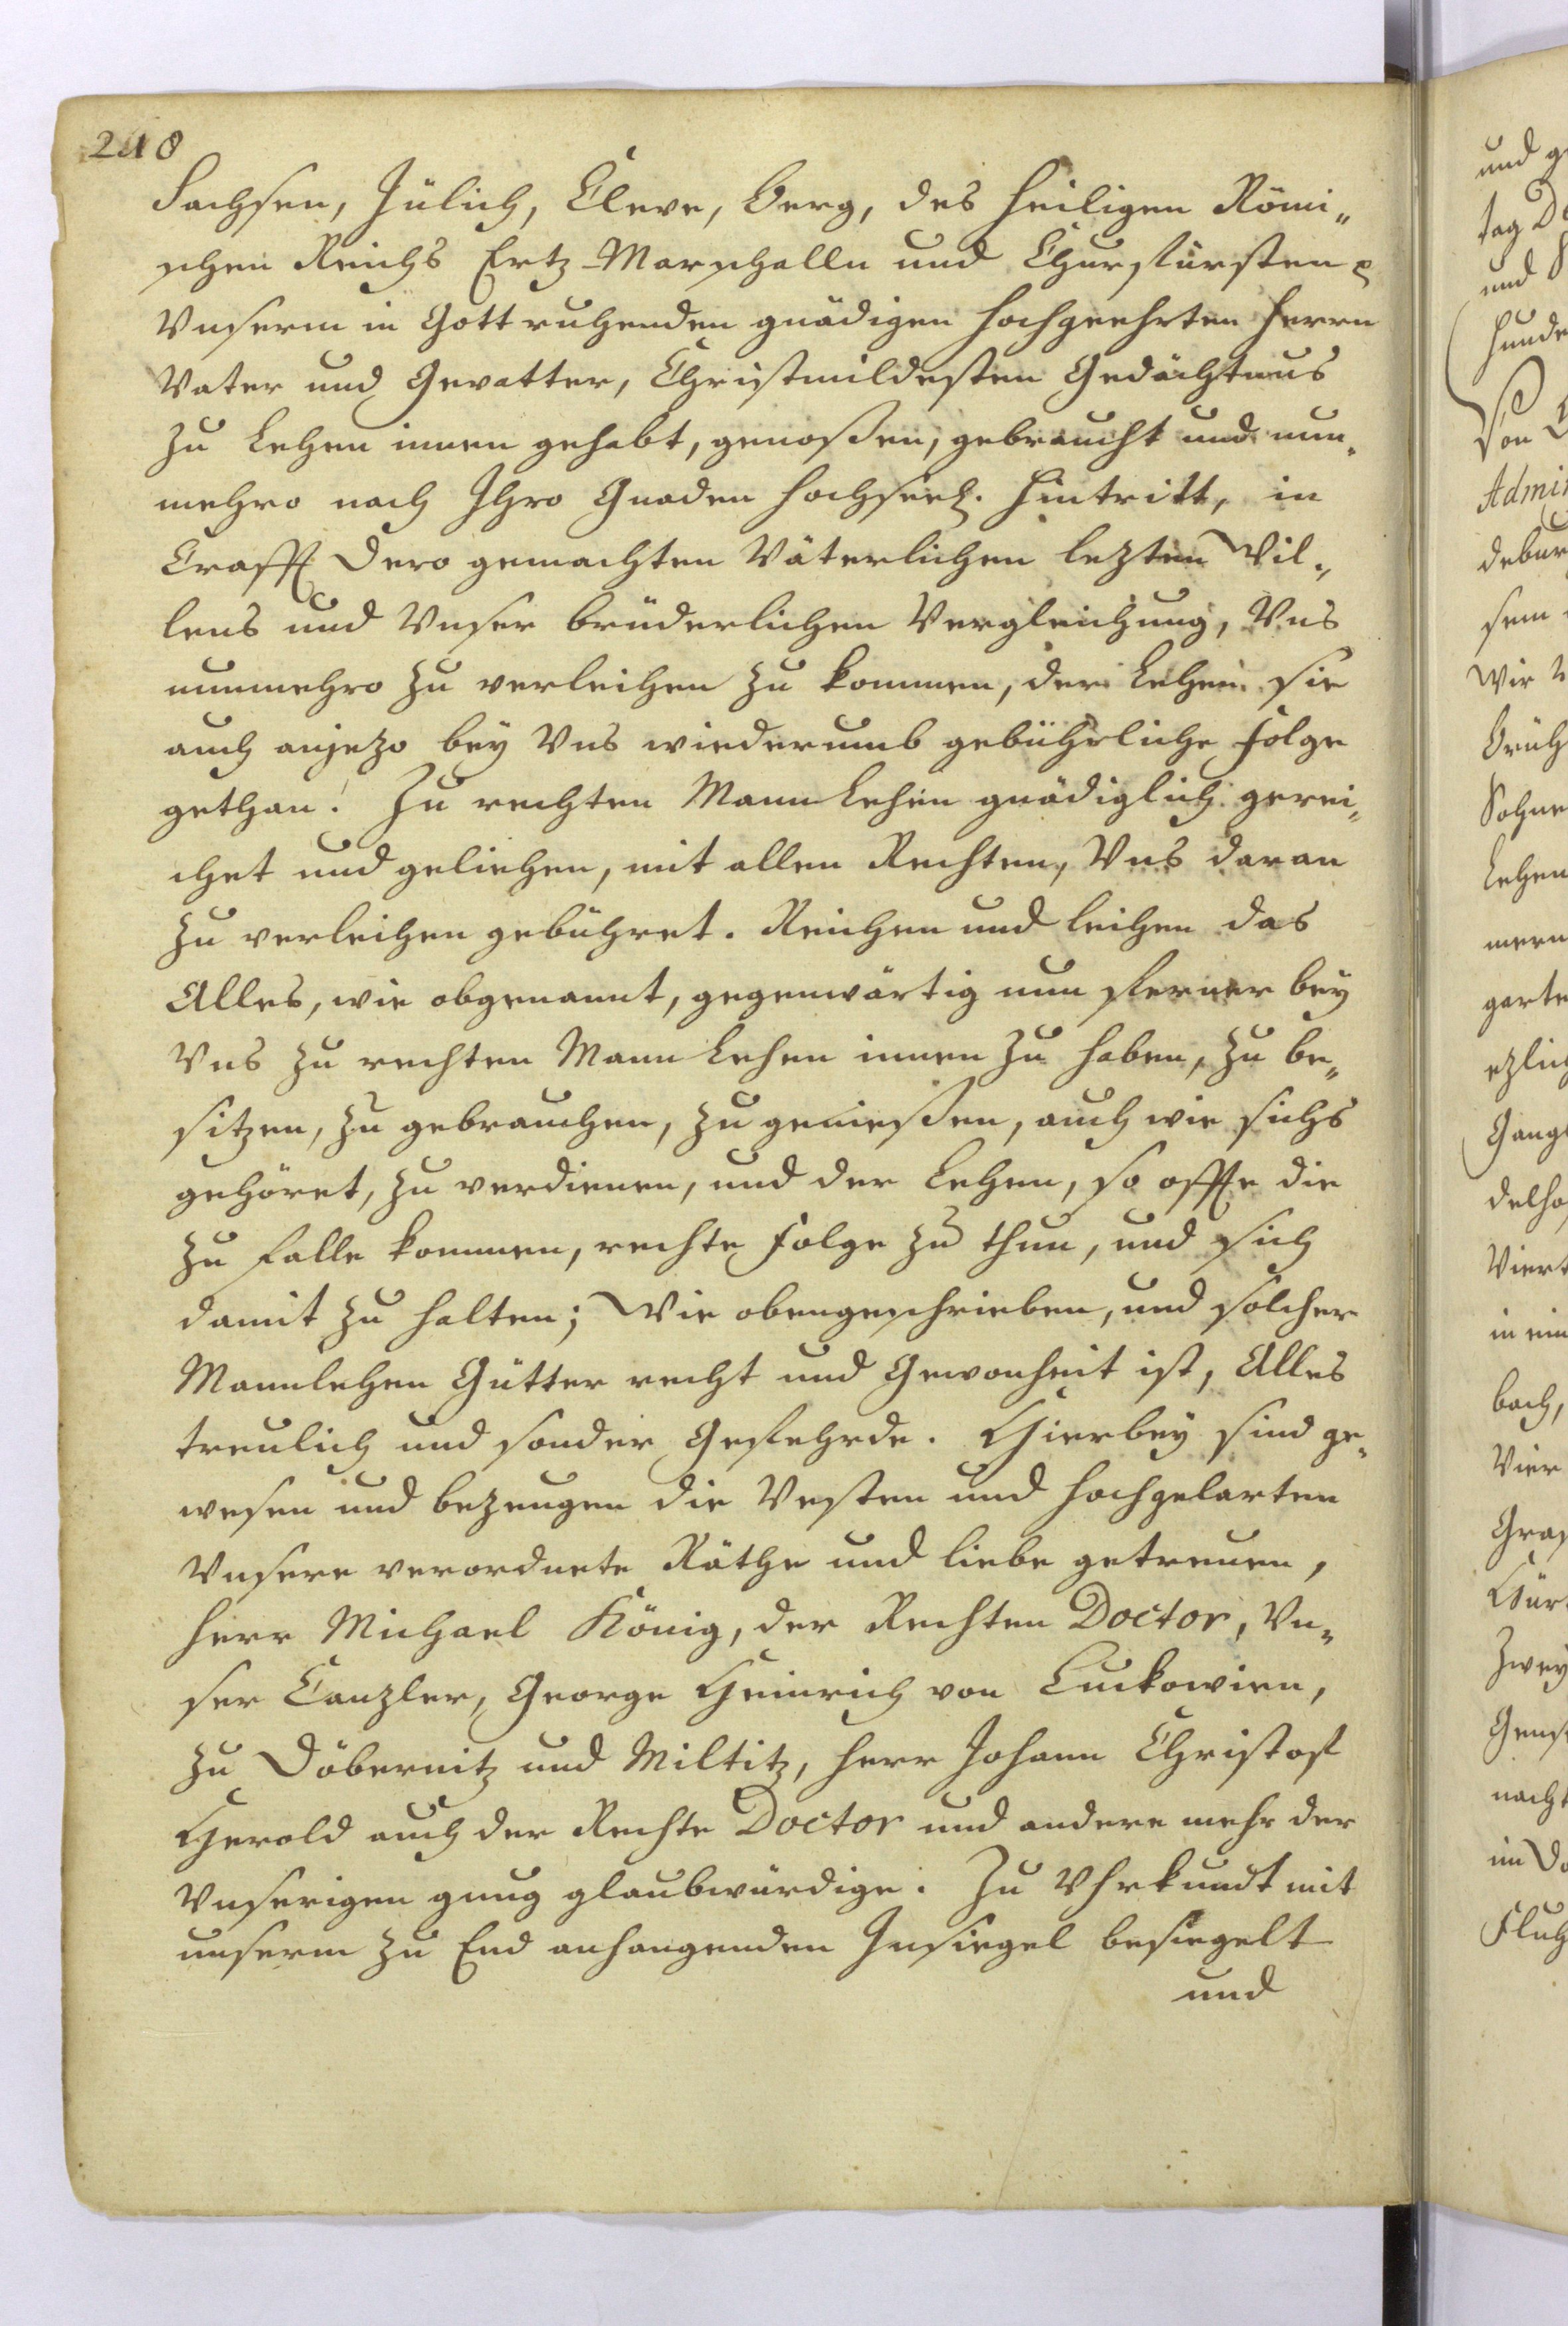 248
Sachsen, Jülich, Cleve, Berg, des heiligen Römi„
schen Reichs Ertz-Marschalln und Churfürsten
Vnserm in Gott ruhenden gnädigen hochgeehrten Herrn
Vater und Gevatter, Christmildesten Gedächtnus
zu Lehen innen gehabt, genoßen, gebraucht und nun„
mehro nach Ihro Gnaden hochseel. Hintritt, in
Crafft dero gemachten Väterlichen lezten Wil„
lens und Vnser brüderlichen Vergleichung, Vns
nunmehro zu verleihen zu kommen, der Lehen sie
auch anjezo bey Vns wiederumb gebührliche folge
gethan! Zu rechten Mann Lehen gnädiglich gerei„
chet und geliehen, mit allen Rechten, Vns daran
zu verleihen gebühret. Reichen und leihen das
Alles, wie obgenannt, gegenwärtig nun ferner bey
Vns zu rechten Mann Lehen innen zu haben, zu be„
sitzen, zu gebrauchen, zu genießen, auch wie sichs
gehöret, zu verdienen, und der Lehen, so offte die
zu falle kommen, rechte folge zu thun, und sich
damit zu halten; Wie obengeschrieben, und solcher
Mannlehen Gütter recht und Gewonheit ist, Alles
treulich und sonder Gefehrde. Hierbey sind ge„
wesen und bezeugen die Vesten und hochgelarten
Vnsere verordnete Räthe und liebe getreuen,
Herr Michael König, der Rechten Doctor, Vn„
ser Canzler, George Heinrich von Luckowien,
zu Döbernitz und Miltitz, Herr Johann Christof
Herold auch der Rechte Doctor und andere mehr der
Vnserigen gnug glaubwürdige. Zu Uhrkundt mit
unserm zu End anhangenden Insiegel besiegelt
und